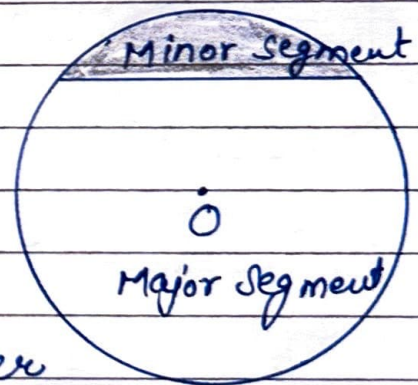 Minor segment
O
Major segment
er